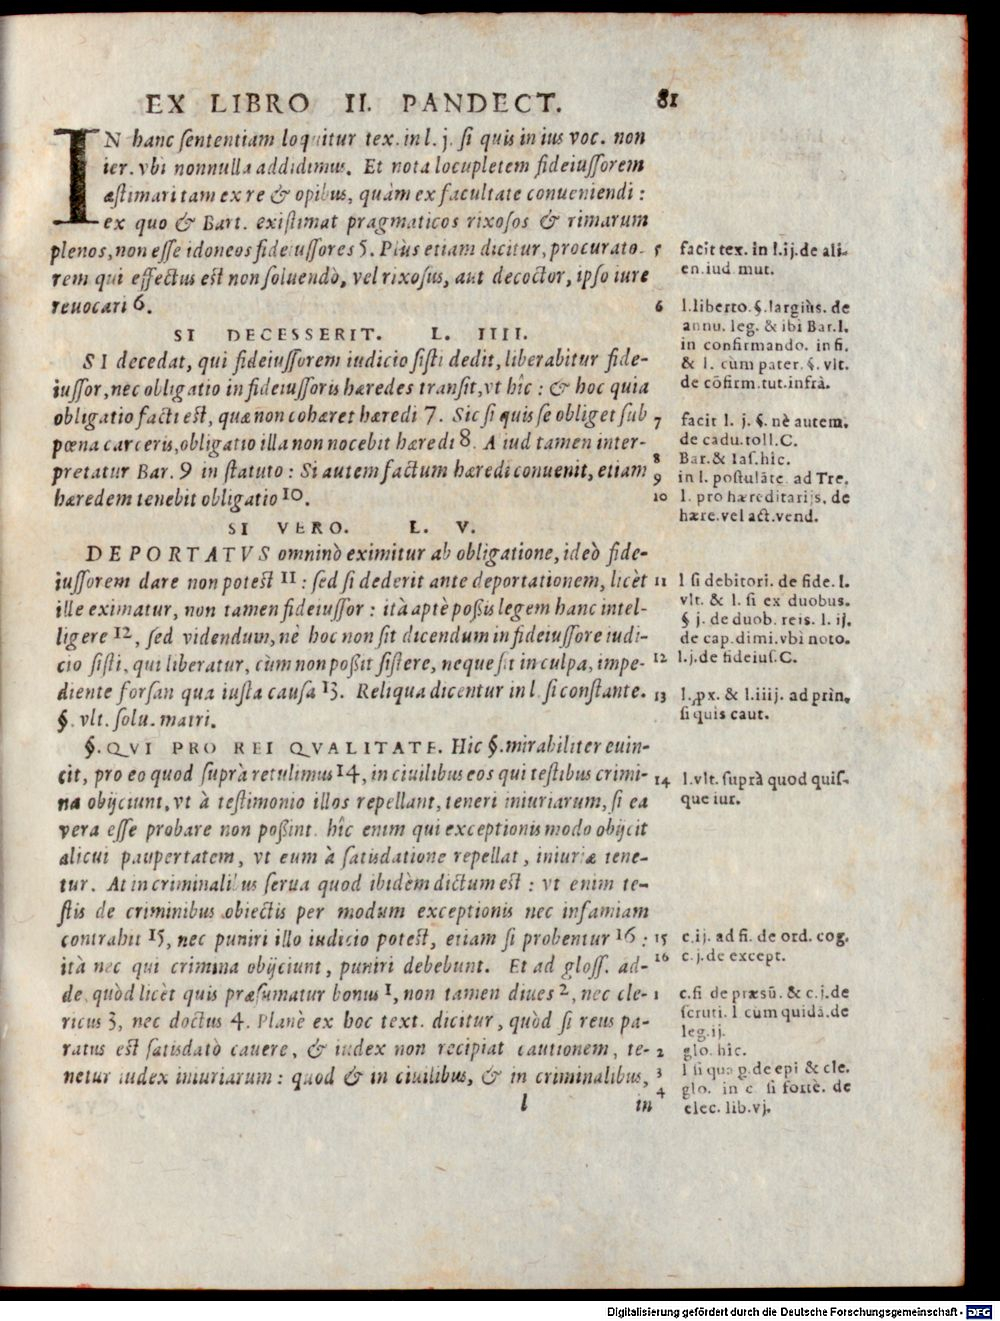 EX LIBRO II. PANDECT. 81
IN hanc sententiam loquitur tex. in l. j. si quis in ius voc. non
ier. vbi nonnulla addidimus. Et nota locupletem fideiussorem
æstimari tam ex re & opibus, quàm ex facultate conueniendi:
ex quo & Bart. existimat pragmaticos rixosos & rimarum
plenos, non esse idoneos fideiussores 5. Plus etiam dicitur, procurato-
rem qui effectus est non soluendò, vel rixosus, aut decoctor, ipso iure
reuocari 6.
SI DECESSERIT. L. IIII.
SI decedat, qui fideiussorem iudicio sisti dedit, liberabitur fide-
iussor, nec obligatio in fideiussoris hæredes transit, vt hîc: & hoc quia
obligatio facti est, quæ non cohæret hæredi 7. Sic si quis se obliget sub
pœna carceris, obligatio illa non nocebit hæredi 8. A iud tamen inter-
pretatur Bar. 9 in statuto: Si autem factum hæredi conuenit, etiam
hæredem tenebit obligatio 10.
SI VERO. L. V.
DEPORTATVS omninò eximitur ab obligatione, ideò fide-
iussorem dare non potest 11: sed si dederit ante deportationem, licèt
ille eximatur, non tamen fideiussor: ità aptè poßis legem hanc intel-
ligere 12, sed videndum, nè hoc non sit dicendum in fideiussore iudi-
cio sisti, qui liberatur, cùm non poßit sistere, neque sit in culpa, impe-
diente forsan qua iusta causa 13. Reliqua dicentur in l. si constante.
§. vlt. solu. matri.
§. QVI PRO REI QVALITATE. Hic §. mirabiliter euin-
cit, pro eo quod suprà retulimus 14, in ciuilibus eos qui testibus crimi-
na obijciunt, vt à testimonio illos repellant, teneri iniuriarum, si ea
vera esse probare non poßint. hîc enim qui exceptionis modo obijcit
alicui paupertatem, vt eum à satisdatione repellat, iniuriæ tene-
tur. At in criminalibus serua quod ibidèm dictum est: vt enim te-
stis de criminibus obiectis per modum exceptionis nec infamiam
contrahit 15, nec puniri illo iudicio potest, etiam si probentur 16:
ità nec qui crimina obijciunt, puniri debebunt. Et ad gloss. ad-
de, quòd licèt quis præsumatur bonus 1, non tamen diues 2, nec cle-
ricus 3, nec doctus 4. Planè ex hoc text. dicitur, quòd si reus pa-
ratus est satisdatò cauere, & iudex non recipiat cautionem, te-
netur iudex iniuriarum: quod & in ciuilibus, & in criminalibus,
l in
5 facit tex. in l.ij.de ali-
en.iud mut.
6 l.liberto.§.largiùs. de
annu. leg. & ibi Bar.l.
in confirmando. in fi.
& l. cùm pater. §. vlt.
de cõfirm.tut.infrà.
7 facit l. j. §. nè autem.
de cadu.toll.C.
8 Bar.& Ias.hic.
9 in l. postulãte. ad Tre.
10 l. pro hæreditarijs. de
hære.vel act.vend.
11 l si debitori. de fide. l.
vlt. & l. si ex duobus.
§ j. de duob. reis. l. ij.
de cap.dimi.vbi noto.
12 l.j.de fideius.C.
13 l.px. & l.iiij. ad prin.
si quis caut.
14 l.vlt. suprà quod quis-
que iur.
15 c.ij. ad fi. de ord. cog.
16 c.j.de except.
1 c.fi de præsũ. & c.j.de
scruti. l cum quidã.de
leg.ij.
2 glo. hîc.
3 l si qua p.de epi & cle.
4 glo. in c. si fortè. de
elec. lib.vj.
Digitalisierung gefördert durch die Deutsche Forschungsgemeinschaft - DFG